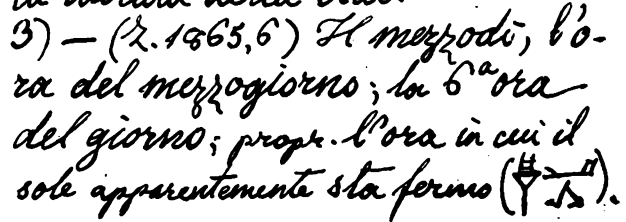 3) — (Z. 1865,6) Il mezzodì, l'o-
ra del mezzogiorno; la 6ª ora
del giorno; propr. l'ora in cui il
sole apparentemente sta fermo ( ).